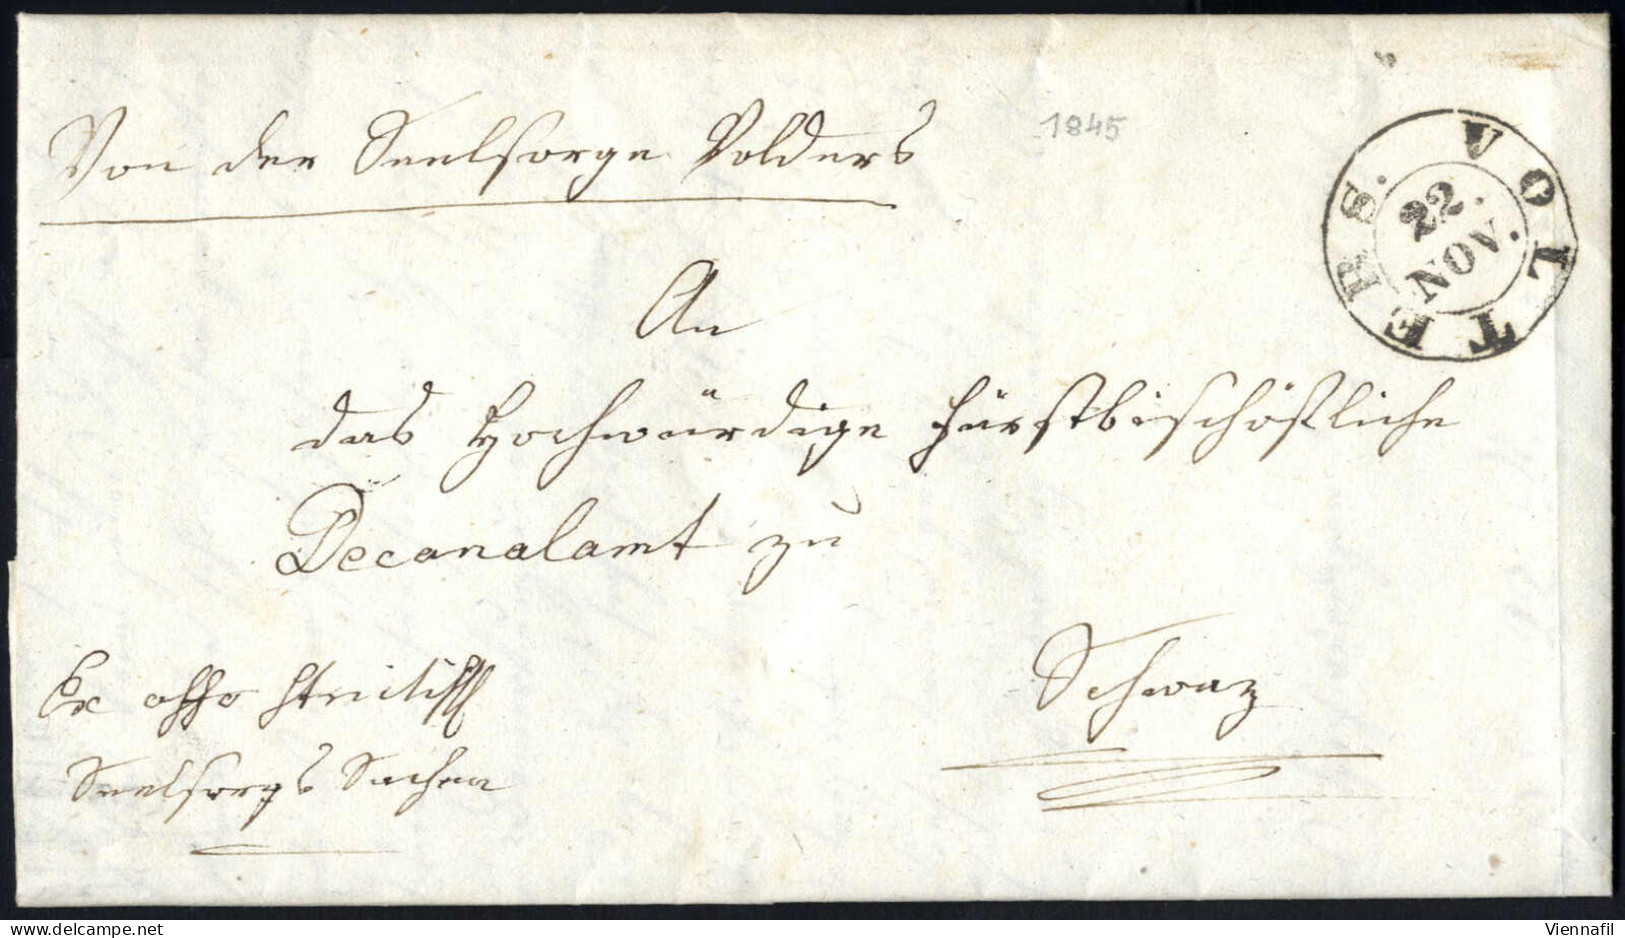 Von der Seelsorge Volders
1845
VOLTERS.
22.
NOV.
An
das Hochwürdige Fürstbischöfliche
Decanalamt zu
Schwaz
Ex offo
Seelsorgs Sachen
Viennafil